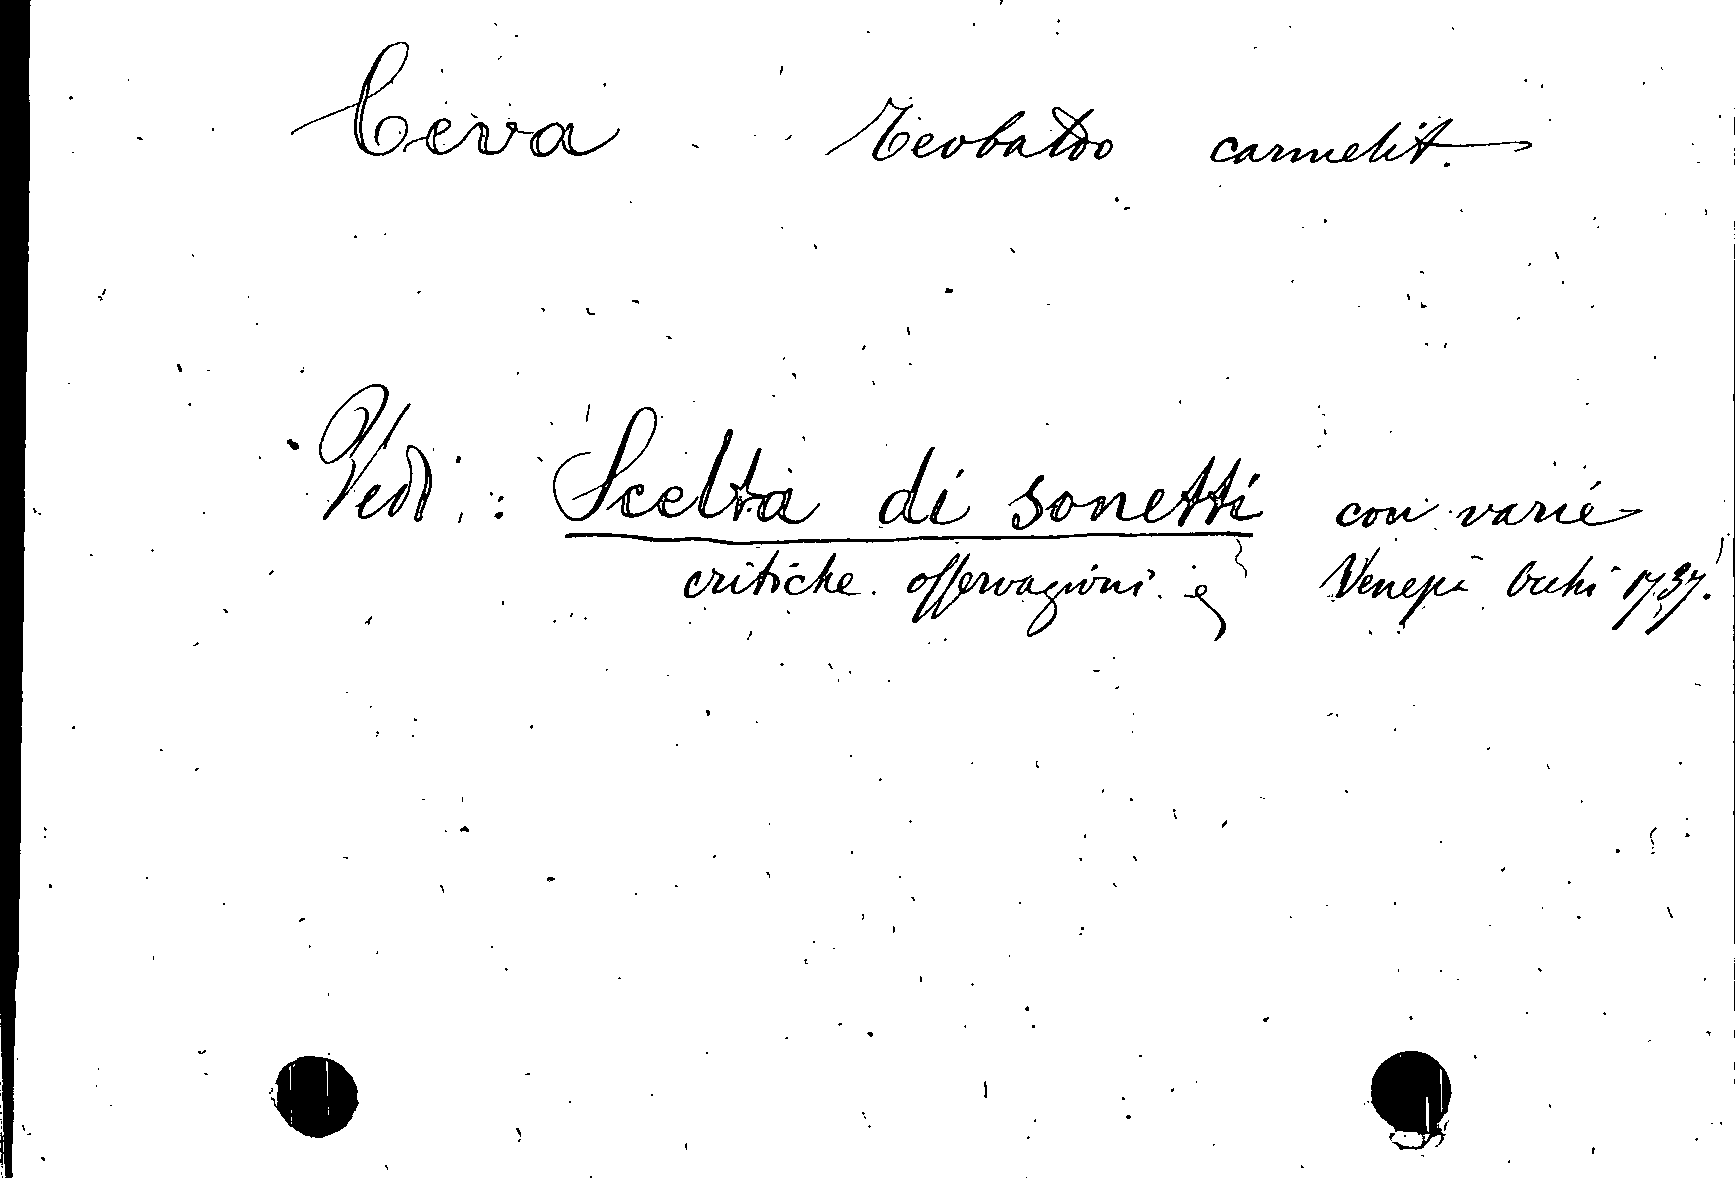 Ceva Teobaldo carmelit.
Vedi: Scelta di sonetti con varie
critiche osservazioni e Venezia Occhi 1737.